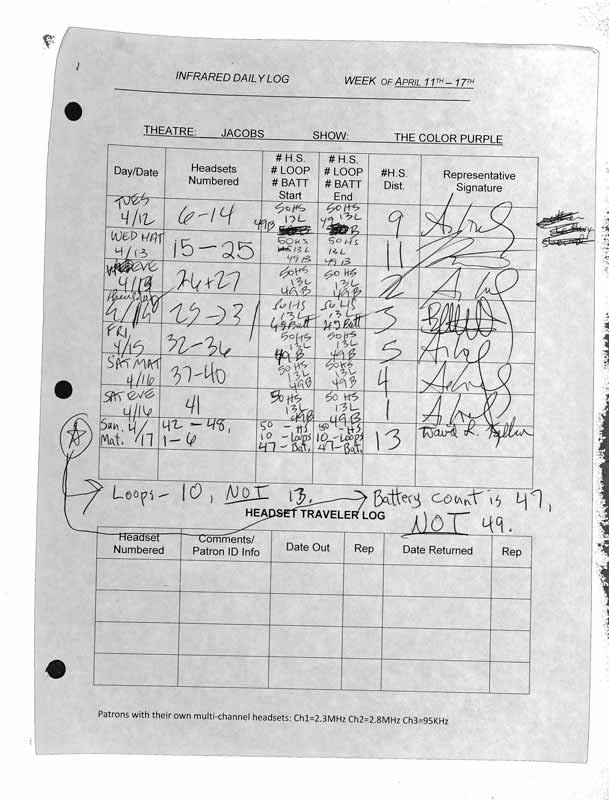 INFRARED DAILY LOG WEEK OF APRIL 11TH – 17TH
THEATRE: JACOBS SHOW: THE COLOR PURPLE
Day/Date
Headsets Numbered
# H.S. # LOOP # BATT Start
# H.S. # LOOP # BATT End
#H.S. Dist.
Representative Signature
TUES 4/12 6-14 50HS 13L 49B 50HS 13L 49B 9
WED MAT 4/13 15-25 50HS 13L 49B 50HS 13L 49B 11
EVE 4/13 26+27 50HS 13L 49B 50HS 13L 49B 2
Thursday 4/14 29-31 50HS 13L 49 Batt 50HS 13L 49 Batt 3
FRI 4/15 32-36 50HS 13L 49B 50HS 13L 49B 5
SAT MAT 4/16 37-40 50HS 13L 49B 50HS 13L 49B 4
SAT EVE 4/16 41 50HS 13L 49B 50HS 13L 49B 1
Sun. Mat. 4/17 42-48, 1-6 50-HS 10-Loops 47-Bat. 50-HS 10-Loops 47-Bat. 13 David R.
Loops- 10, NOT 13. Battery count is 47, NOT 49.
HEADSET TRAVELER LOG
Headset Numbered
Comments/ Patron ID Info
Date Out
Rep
Date Returned
Rep
Patrons with their own multi-channel headsets: Ch1=2.3MHz Ch2=2.8MHz Ch3=95KHz